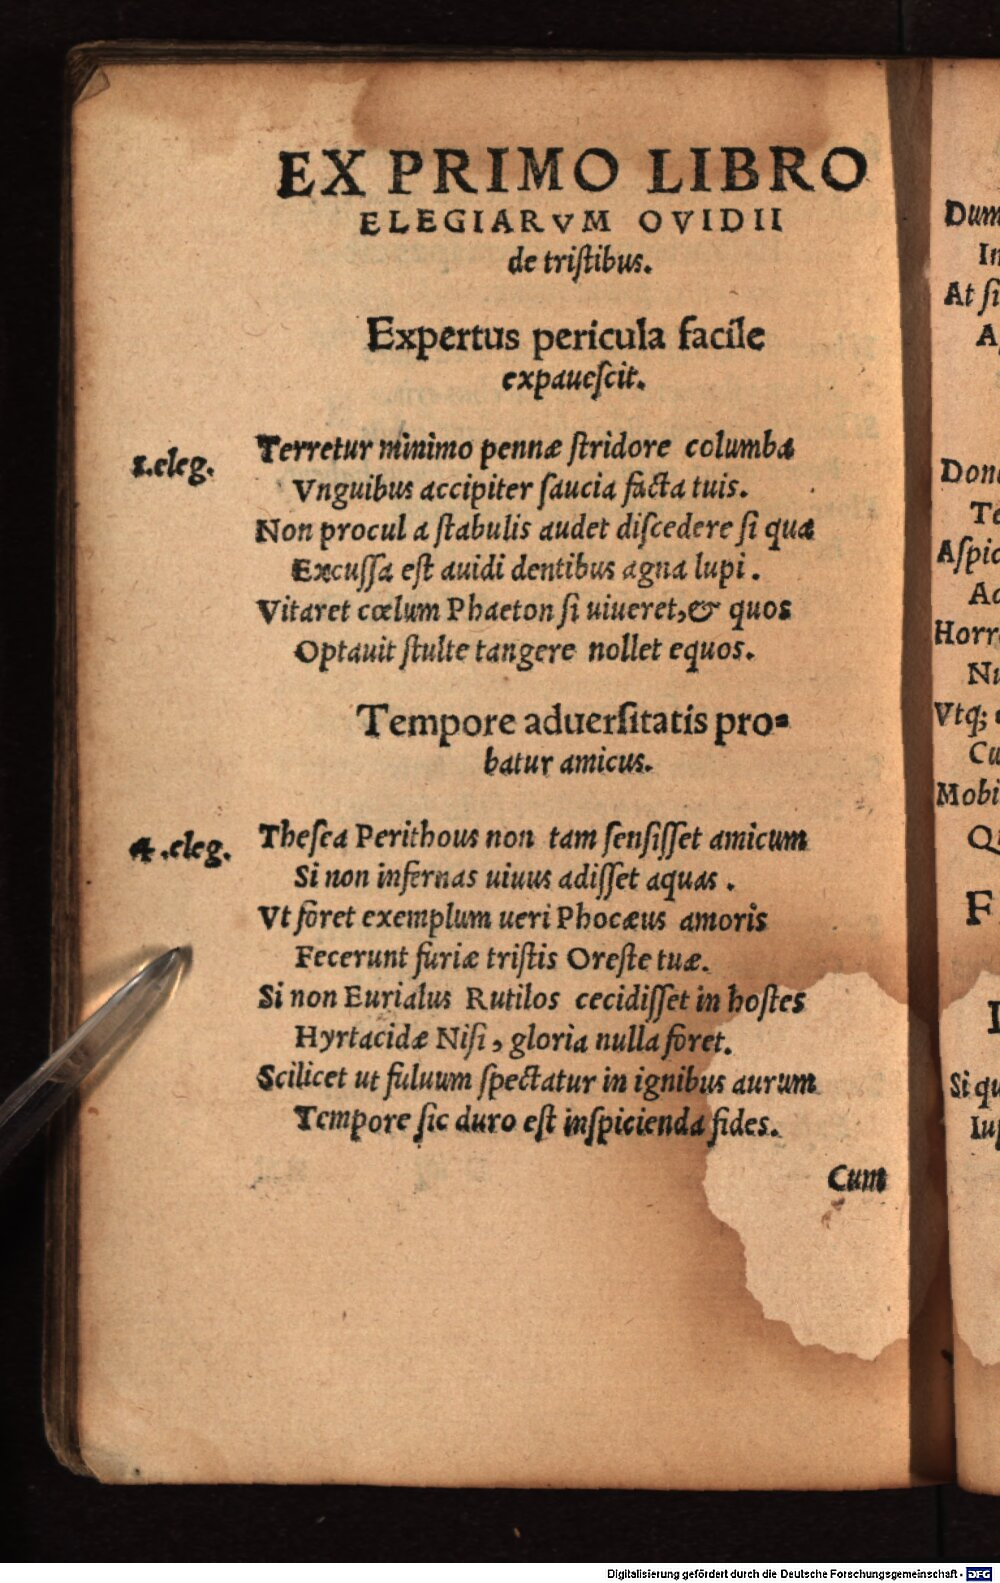 EX PRIMO LIBRO
ELEGIARVM OVIDII
de triſtibus.
Expertus pericula facile
expaueſcit.
1.eleg.
Terretur minimo pennæ ſtridore columba
Vnguibus accipiter ſaucia facta tuis.
Non procul a ſtabulis audet diſcedere ſi qua
Excuſſa eſt auidi dentibus agna lupi.
Vitaret cœlum Phaeton ſi uiueret,& quos
Optauit ſtulte tangere nollet equos.
Tempore aduerſitatis pro=
batur amicus.
4.eleg.
Theſea Perithous non tam ſenſiſſet amicum
Si non infernas uiuus adiſſet aquas.
Vt foret exemplum ueri Phocæus amoris
Fecerunt furiæ triſtis Oreſte tuæ.
Si non Eurialus Rutilos cecidiſſet in hoſtes
Hyrtacidæ Niſi, gloria nulla foret.
Scilicet ut fuluum ſpectatur in ignibus aurum
Tempore ſic duro eſt inſpicienda fides.
Cum
Dum
In
At ſi
A
Don
Te
Aſpic
Ad
Horr
Nu
Vtq;
Cu
Mobi
Q
F
I
Si qu
Iuſ
Digitalisierung gefördert durch die Deutsche Forschungsgemeinschaft - DFG